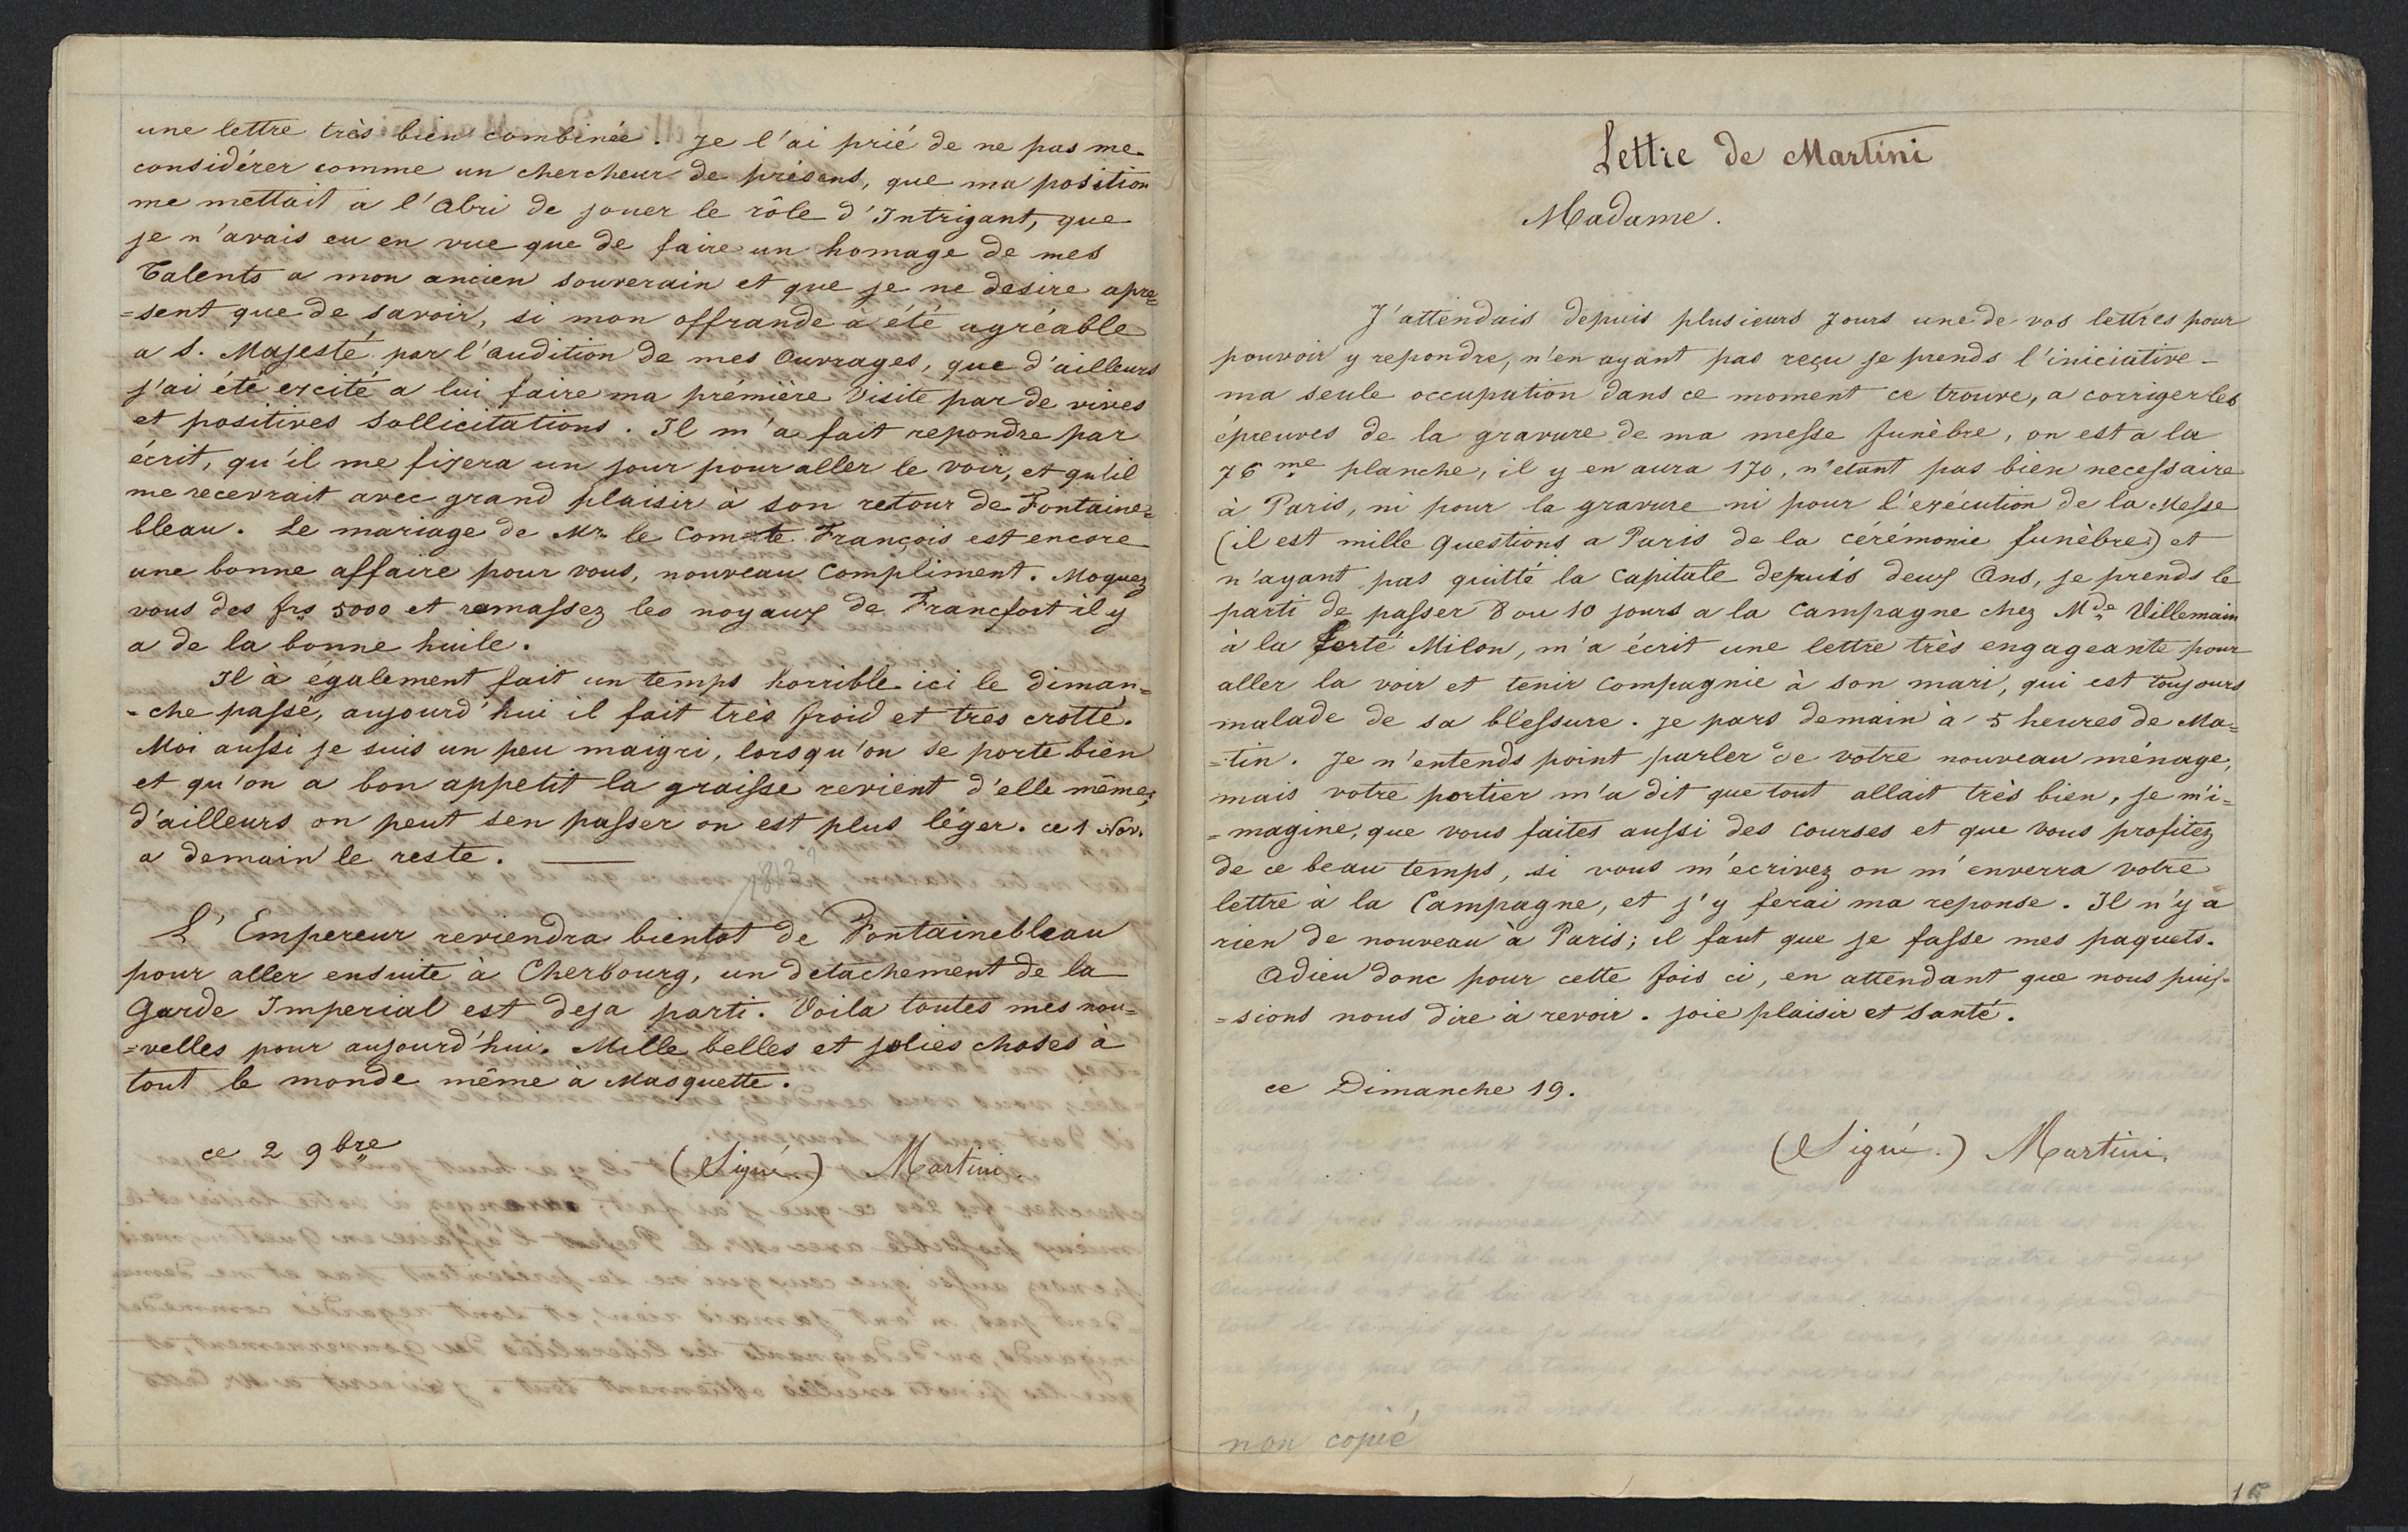 une lettre très bien combinée. Je l'ai prié de ne pas me
considérer comme un chercheur de présens, que ma position
me mettait a l'Abri de jouer le rôle d'Intrigant, que
je n'avais eu en vue que de faire un homage de mes
Talents a mon ancien souverain et que je ne desire apre=
=sent que de savoir, si mon offrande à été agréable
a S. Majesté par l'audition de mes Ouvrages, que d'ailleurs
j'ai été excité a lui faire ma prémière Visite par de vives
et positives Sollicitations. Il m'a fait repondre par
écrit, qu'il me fixera un jour pour aller le voir, et qu'il
me recevrait avec grand plaisir à son retour de Fontaine=
bleau. Le mariage de Mr. le Comte François est encore
une bonne affaire pour vous, nouveau Compliment. Moquez
vous des frs 5000 et ramassez les noyaux de Francfort il y
a de la bonne huile.
Il à également fait un temps horrible ici le diman=
=che passé, aujourd'hui il fait très froid et très crotté.
Moi aussi je suis un peu maigri, lorsqu'on se porte bien
et qu'on a bon appetit la graisse revient d'elle même;
d'ailleurs on peut s'en passer on est plus léger. ce 1 Nov.
a demain le reste. ——
L'Empereur reviendra bientot de Fontainebleau
pour aller ensuite à Cherbourg, un detachement de la
Garde Imperial est deja parti. Voila toutes mes nou=
=velles pour aujourd'hui. Mille belles et jolies choses à
tout le monde même à Masquette.
ce 2 9bre
(Signé.) Martini
Lettre de Martini
Madame.
J'attendais depuis plusieurs jours une de vos lettres pour
pouvoir y repondre, n'en ayant pas reçu je prends l'iniciative -
ma seule occupation dans ce moment ce trouve, a corriger les
épreuves de la gravure de ma messe funèbre, on est a la
76me planche, il y en aura 170, n'etant pas bien necessaire
à Paris, ni pour la gravure ni pour l'exécution de la Messe
(il est mille Questions a Paris de la cérémonie funèbre) et
n'ayant pas quitté la Capitale depuis deux Ans, je prends le
parti de passer 8 ou 10 jours a la Campagne chez Mde Villemain
à la ferté Milon, m'a écrit une lettre très engageante pour
aller la voir et tenir Compagnie à son mari, qui est toujours
malade de sa blessure. je pars demain à 5 heures de Ma=
=tin. Je n'entends point parler de votre nouveau ménage,
mais votre portier m'a dit que tout allait très bien, je m'i=
=magine, que vous faites aussi des Courses et que vous profitez
de ce beau temps, si vous m'ecrivez on m'enverra votre
lettre à la Campagne, et j'y ferai ma reponse. Il n'y a
rien de nouveau à Paris; il faut que je fasse mes paquets.
Adieu donc pour cette fois ci, en attendant que nous puis=
=sions nous dire à revoir. joie plaisir et Santé.
ce Dimanche 19.
(Signé.) Martini.
non copié